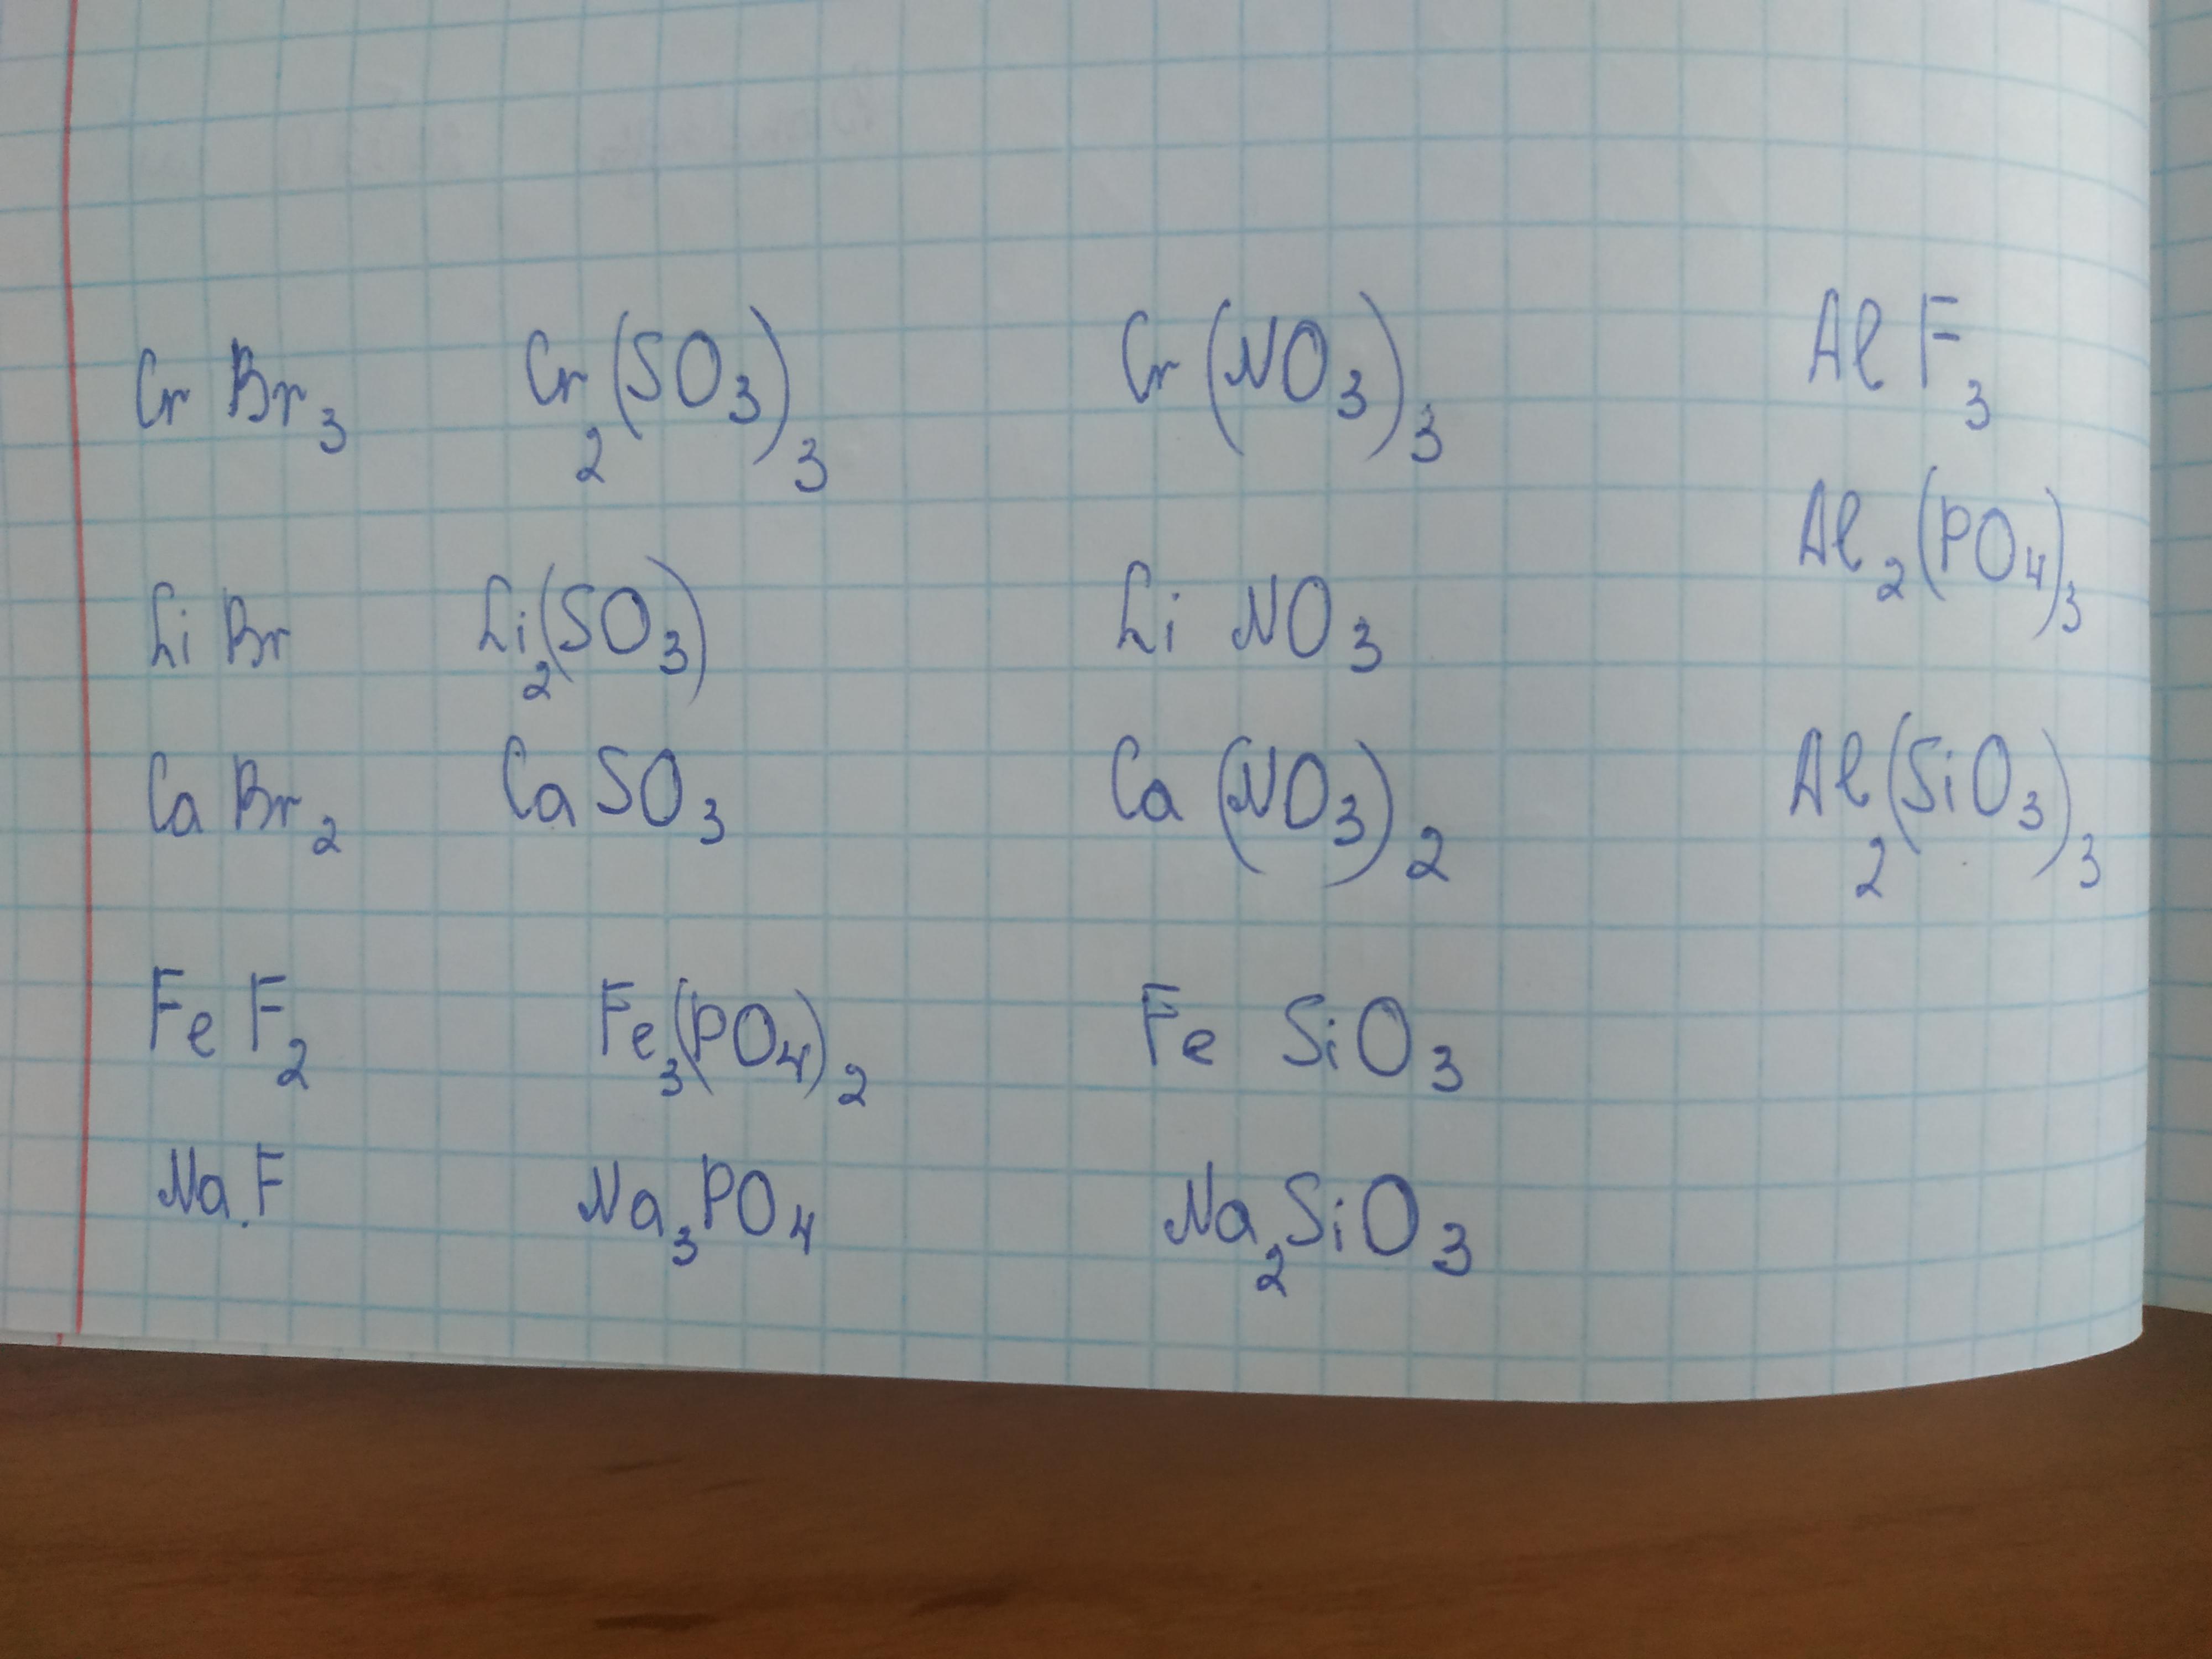 CrBr₃ Cr₂(SO₃)₃ Cr(NO₃)₃ AlF₃
Al₂(PO₄)₃
LiBr Li₂(SO₃) LiNO₃
CaBr₂ CaSO₃ Ca(NO₃)₂ Al₂(SiO₃)₃
FeF₂ Fe₃(PO₄)₂ FeSiO₃
NaF Na₃PO₄ Na₂SiO₃